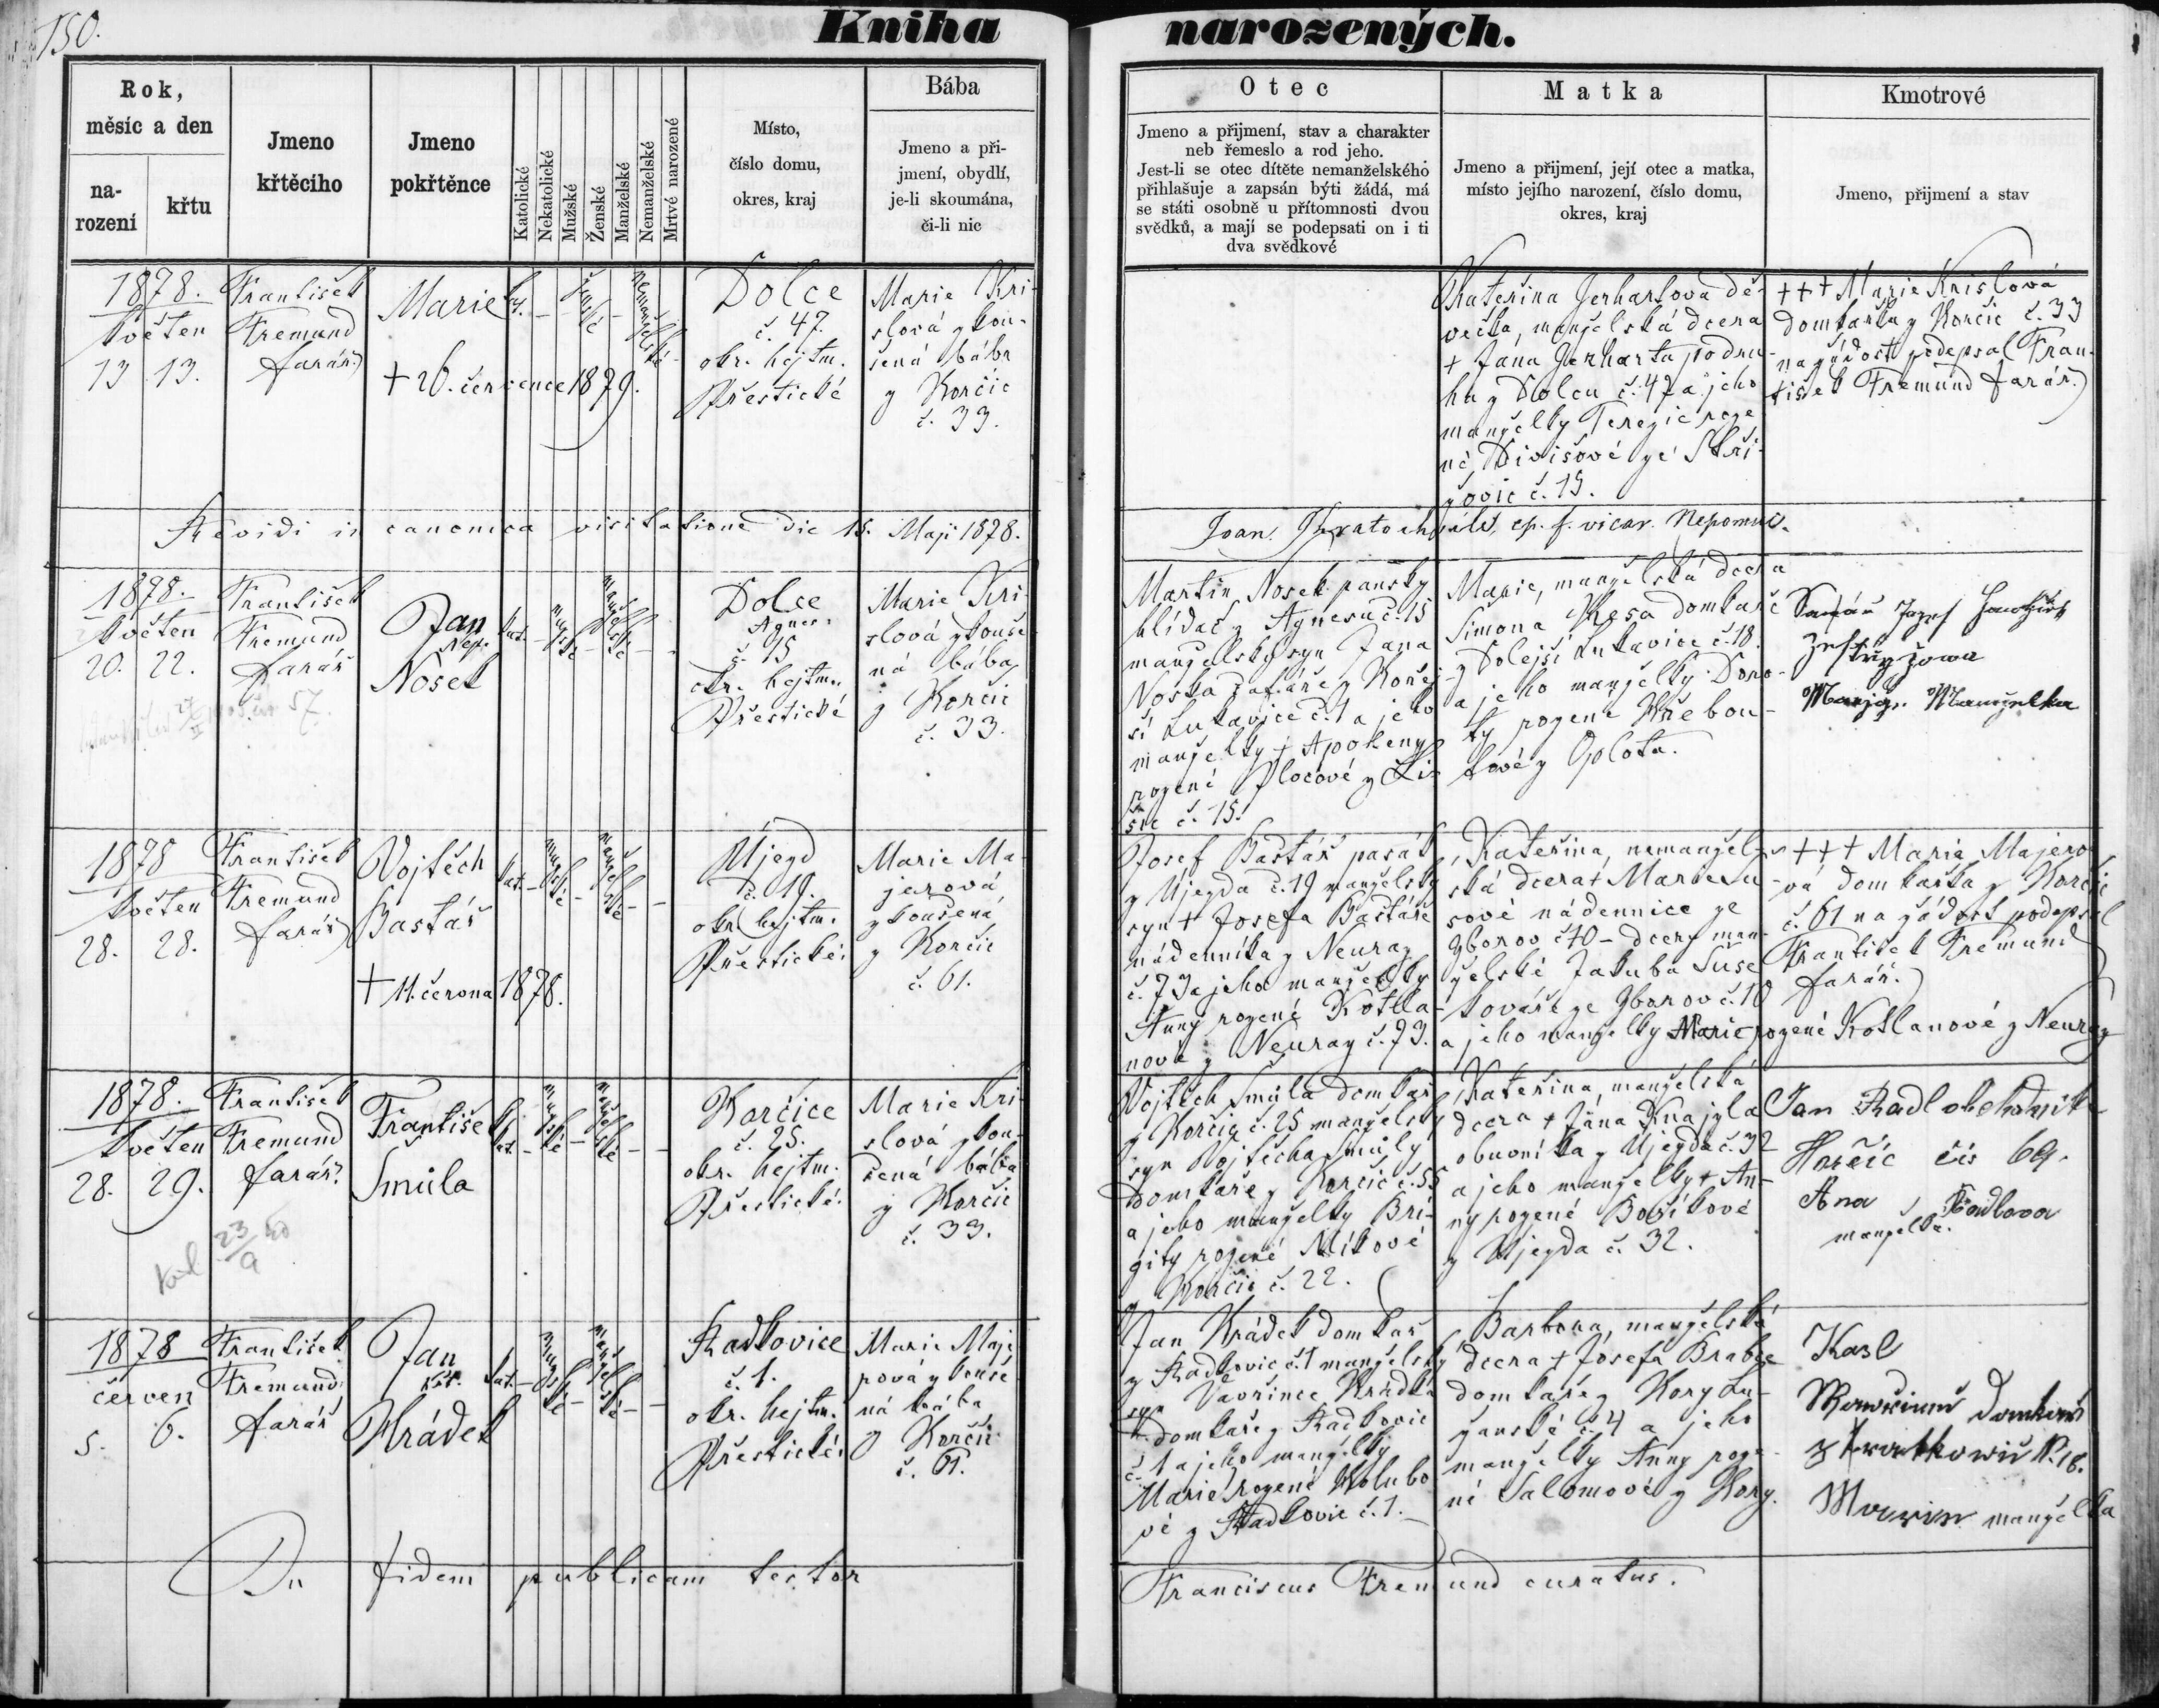 150.
Kniha narozených.
Rok,
měsíc a den
na-
rození
křtu
Jmeno
křtěcího
Jmeno
pokřtěnce
Katolické
Nekatolické
Mužské
Ženské
Manželské
Nemanželské
Mrtvé narozené
Místo,
číslo domu,
okres, kraj
Bába
Jmeno a při-
jmení, obydlí,
je-li skoumána,
či-li nic
Otec
Jmeno a přijmení, stav a charakter
neb řemeslo a rod jeho.
Jest-li se otec dítěte nemanželského
přihlašuje a zapsán býti žádá, má
se státi osobně u přítomnosti dvou
svědků, a mají se podepsati on i ti
dva svědkové
Matka
Jmeno a přijmení, její otec a matka,
místo jejího narození, číslo domu,
okres, kraj
Kmotrové
Jmeno, přijmení a stav
1878.
květen
13 13.
František
Fremund
farář
Marie
+ 26. července 1879.
kat.
ženské
nemanželské
Dolce
č. 47.
okr. hejtm.
Přestické
Marie Kri-
slová zkou-
šená bába
z Horčic
č. 33.
Kateřina Gerhartova dě-
večka, manželská dcera
+ Jána Gerharta podru-
ha z Dolcu č. 47 a jeho
manželky Terezie roze-
né Divišové ze Skři-
žovic č. 19.
+++ Marie Krislová
domkařka z Horčic č. 33
na žádost podepsal Fran-
tišek Fremund farář.
Revidi in canonica visitatione die 15. Maji 1878.
Joan. ep. f. vicar. Nepomuc.
1878.
květen
20. 22.
František
Fremund
farář
Jan
Nep.
Nosek
kat.
mužské
manželské
Dolce
Agnes.
č. 15
okr. hejtm.
Přestické
Marie Kri-
slová zkouše-
ná bába
z Horčic
č. 33.
Martin Nosek panský
hlídač z Agnesu č. 15
manželský syn Jana
Noska šafáře z Hořej-
ší Lukavice č. 1 a jeho
manželky + Apoleny
rozené Plocové z Li-
šic č. 15.
Marie, manželská dcera
Šimona domkáře
z Dolejší Lukavice č. 18.
a jeho manželky Doro-
ty rozené Hřebou-
kové z Oplota.
Jozef
Manželka
1878
květen
28. 28.
František
Fremund
farář
Vojtěch
Baštář
+ 11. června 1878.
kat.
mužské
manželské
Újezd
č. 19.
okr. hejtm.
Přestické.
Marie Ma-
jerová
zkoušená
z Horčic
č. 61.
Josef Baštář pasák
z Újezda č. 19 manželský
syn + Josefa Baštáře
nádenníka z Neuraz
č. 73 a jeho manželky
Anny rozené Kotla-
nové z Neuraz č. 73.
Kateřina, nemanžel-
ská dcera + Marie Su-
sové nádennice ze
Zborov č. 10 - dcery man-
želské Jakuba Suse
kováře ze Zborov č. 10
a jeho manželky Marie rozené Kotlanové z Neuraz
+++ Marie Majero-
vá domkařka z Horčic
č. 61 na žádost podepsal
František Fremund
farář.
1878.
květen
28. 29.
František
Fremund
farář.
František
Šmůla
kat.
mužské
manželské
Horčice
č. 25.
okr. hejtm.
Přestické.
Marie Kri-
slová zkou-
šená bába
z Horčic
č. 33.
Vojtěch Šmůla domkař
z Horčic č. 25 manželský
syn Vojtěcha Šmůly
domkáře z Horčic č. 55
a jeho manželky Bri-
gity rozené Míkové
z Horčic č. 22.
Kateřina, manželská
dcera + Jána Knajzla
obuvníka z Újezda č. 32
a jeho manželky + An-
ny rozené Božíkové
z Újezda č. 32.
Jan Radl obchodník
Horčic čis 69.
Ana Radlova
manželka.
23/9 40
1878
červen
5. 6.
František
Fremund
farář
Jan
Křt.
Hrádek
kat.
mužské
manželské
Radkovice
č. 1.
okr. hejtm.
Přestické.
Marie Maje-
rová zkouše-
ná bába
z Horčic
č. 61.
Jan Hrádek domkař
z Radkovic č. 1 manželský
syn Vavřince Hrádka
domkáře z Radkovic
č. 1 a jeho manželky
Marie rozené Holubo-
vé z Radkovic č. 1.
Barbora, manželská
dcera + Josefa Brabce
domkáře z Hory Lu-
žanské č. 4 a jeho
manželky Anny roze-
né Salomové z Hory.
Karl
manželka
In fidem publicam testor
Franciscus Fremund curatus.